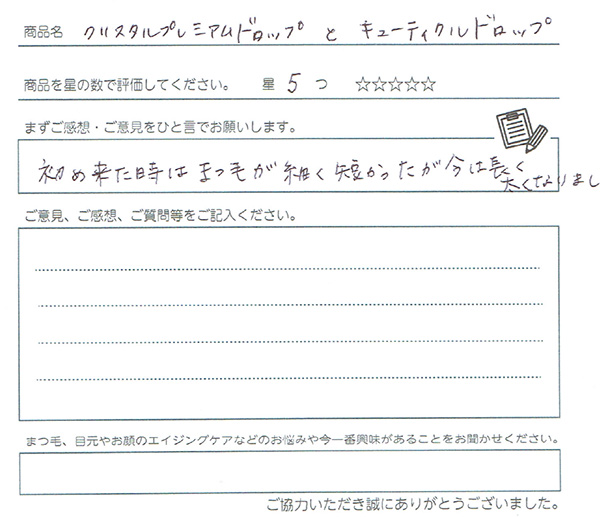 商品名 クリスタルプレミアムドロップ と キューティクルドロップ
商品を星の数で評価してください。 星 5 つ ☆☆☆☆☆
まずご感想・ご意見をひと言でお願いします。
初め来た時はまつ毛が細く短かったが今は長く
太くなりまし
ご意見、ご感想、ご質問等をご記入ください。
まつ毛、目元やお顔のエイジングケアなどのお悩みや今一番興味があることをお聞かせください。
ご協力いただき誠にありがとうございました。